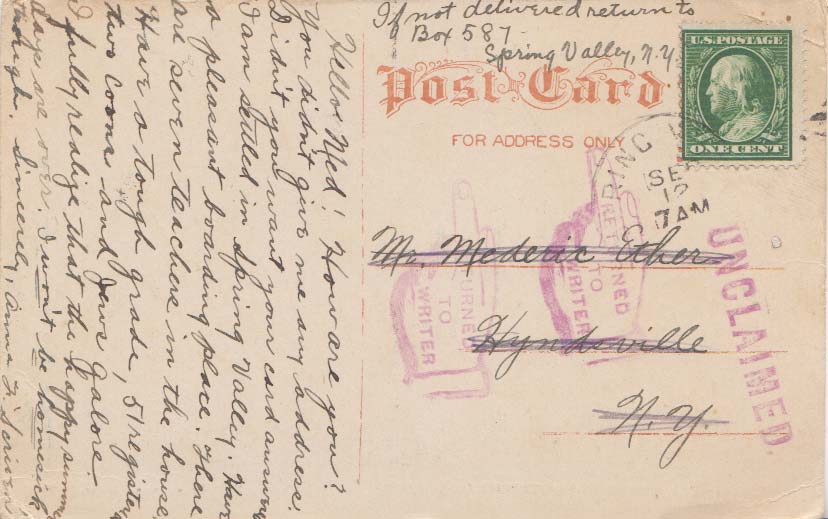 If not delivered return to
Box 587
Spring Valley, N.Y.
U.S. POSTAGE
ONE CENT
Post Card
FOR ADDRESS ONLY
RING
SE
7AM
RETURNED
TO
WRITER
URNED
TO
WRITER
UNCLAIMED.
Mr. Mederic Ether
Hyndsville
N.Y.
Hello! Med! How are you?
You didn't give me any address.
Didn't you want your card answered
I am settled in Spring Valley. Have
a pleasant boarding place. There
are seven teachers in the house.
Have a tough grade, 51 register,
two coons and Jews galore
I fully realize that the happy summer
days are over. I won't be homesick
though. Sincerely, Anna